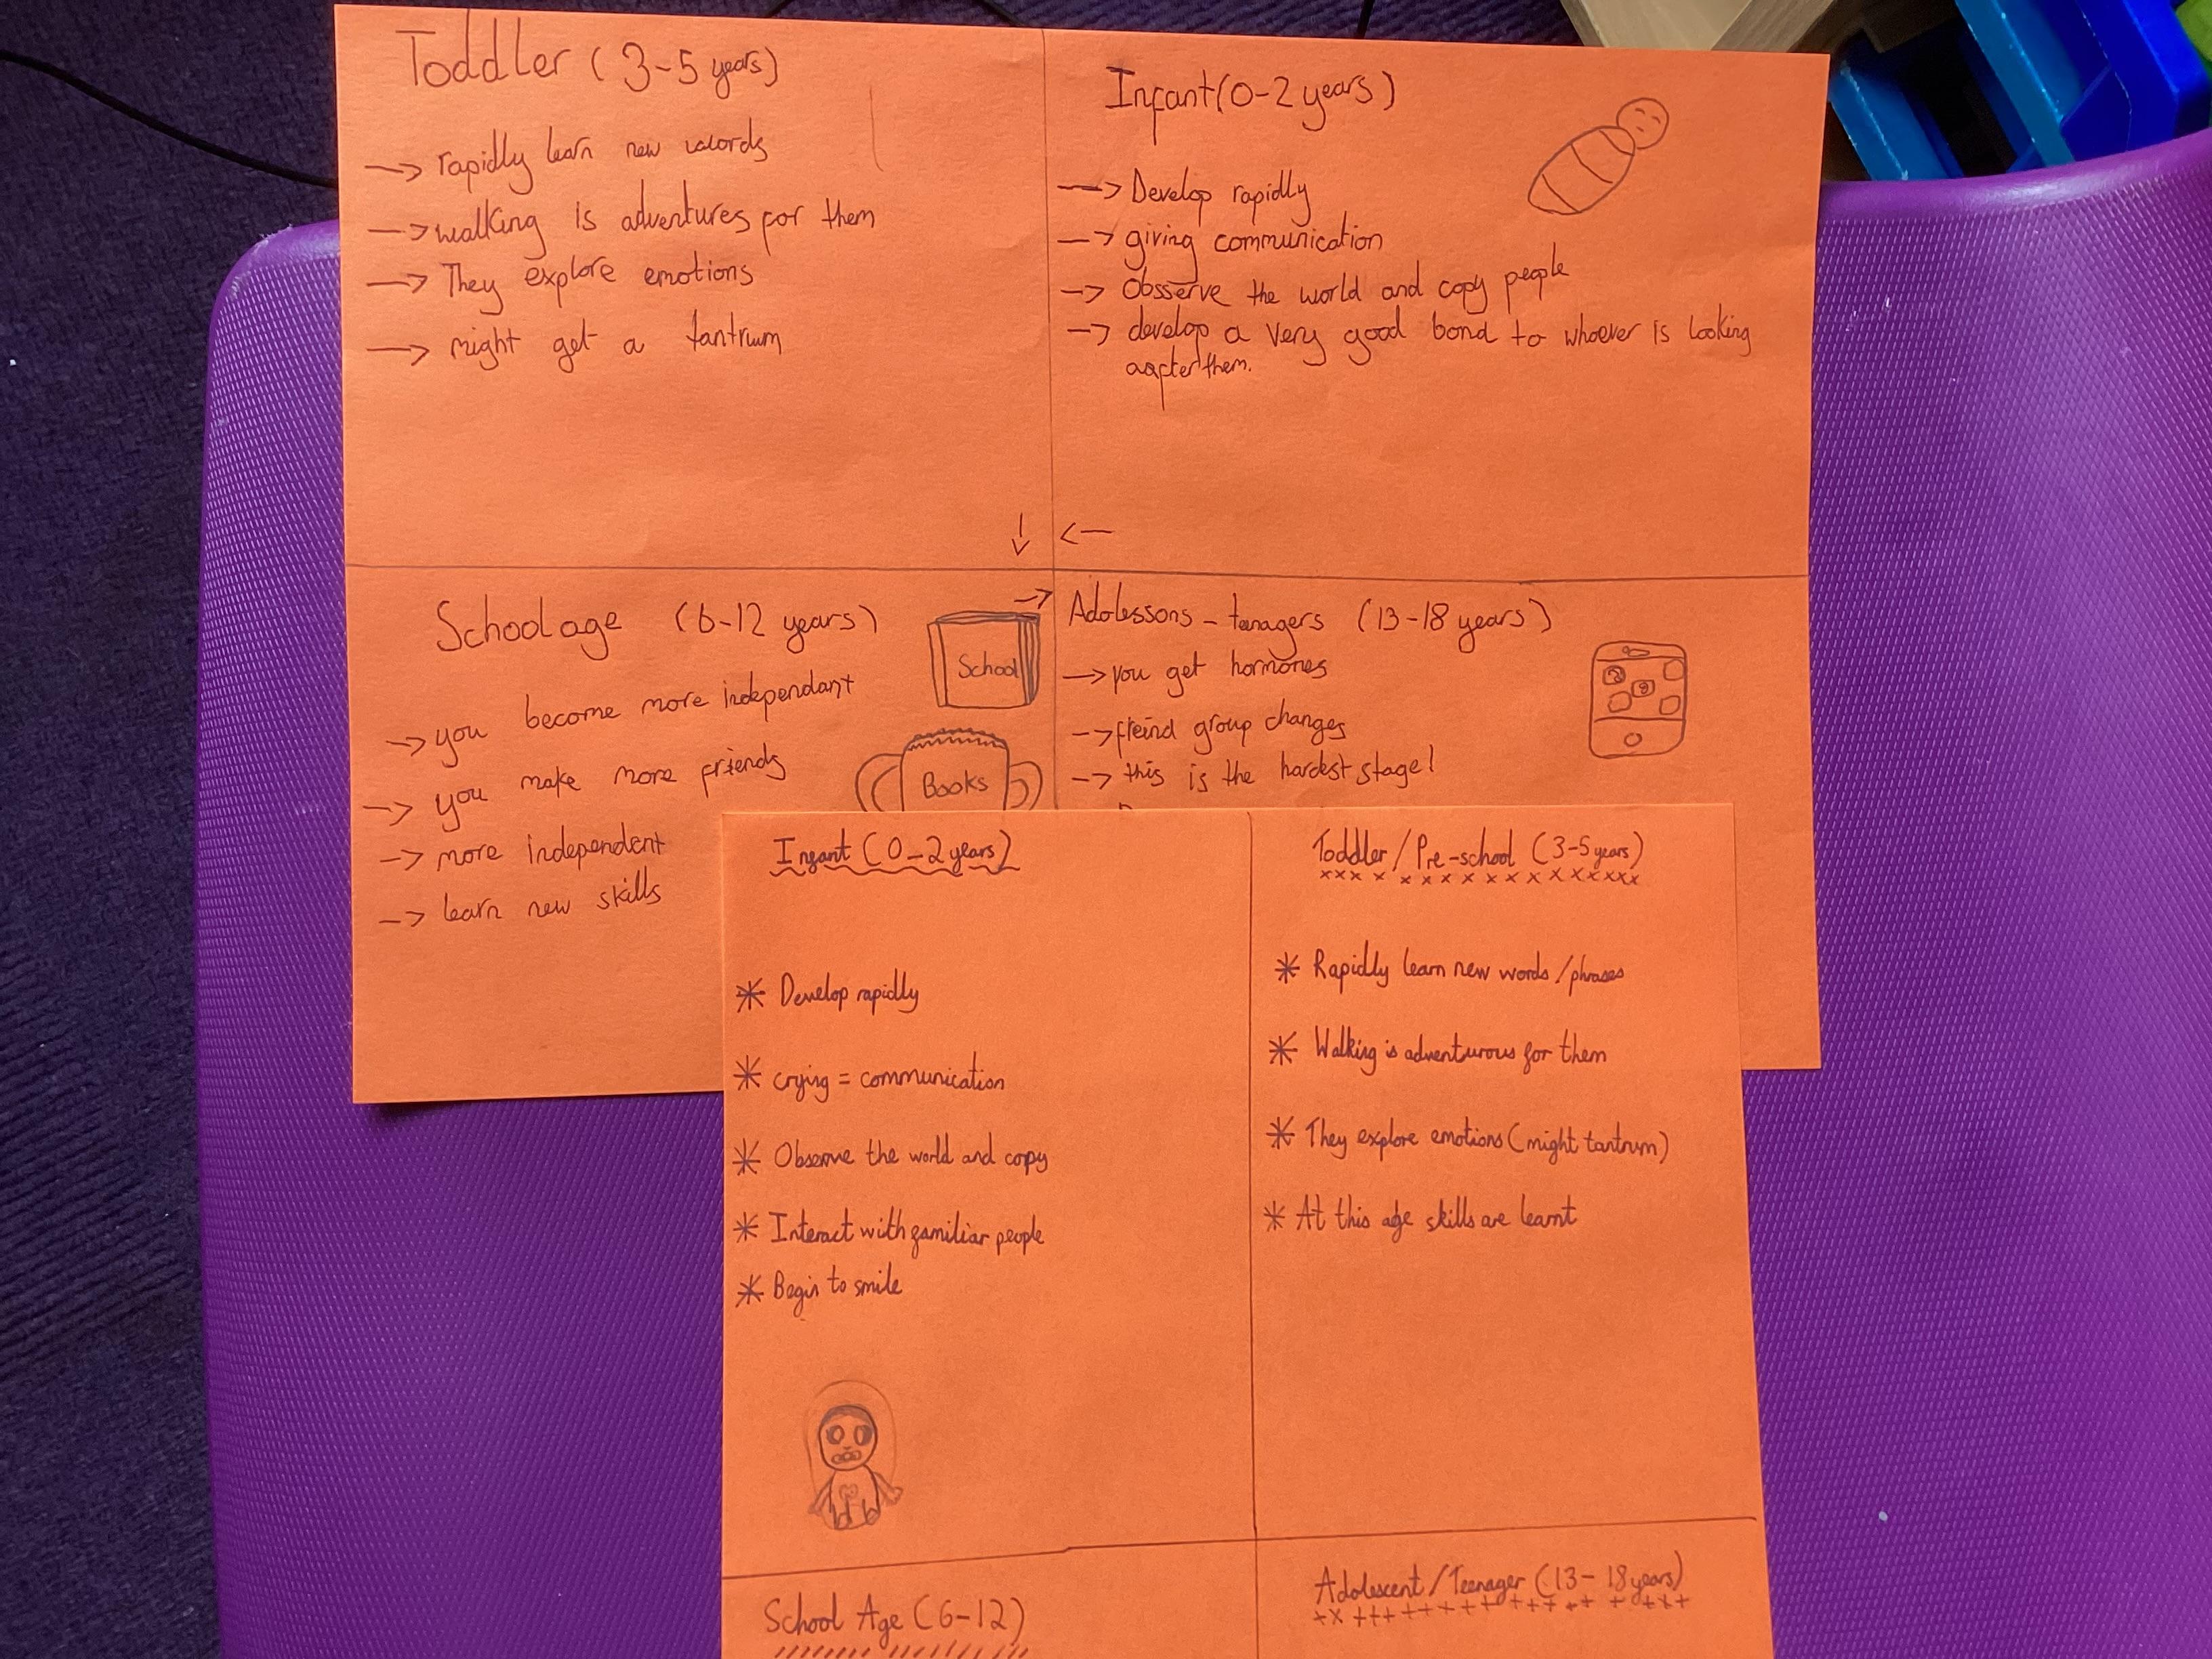 Toddler (3-5 years)
→ rapidly learn new words
→ walking is adventures for them
→ They explore emotions
→ might get a tantrum
Infant (0-2 years)
→ Develop rapidly
→ giving communication
→ Obsserve the world and copy people
→ develop a very good bond to whoever is looking
aafter them.
↓ ←
School age (6-12 years) →
→ you become more independant
→ you make more friends
→ more independent
→ learn new skills
School
Books
Adolessons - teenagers (13-18 years)
→ you get hormones
→ freind group changes
→ this is the hardest stage!
Infant (0-2 years)
* Develop rapidly
* crying = communication
* Observe the world and copy
* Interact with familiar people
* Begin to smile
Toddler / Pre-school (3-5 years)
* Rapidly learn new words / phrases
* Walking is adventurous for them
* They explore emotions (might tantrum)
* At this age skills are learnt
School Age (6-12)
Adolescent / Teenager (13-18 years)